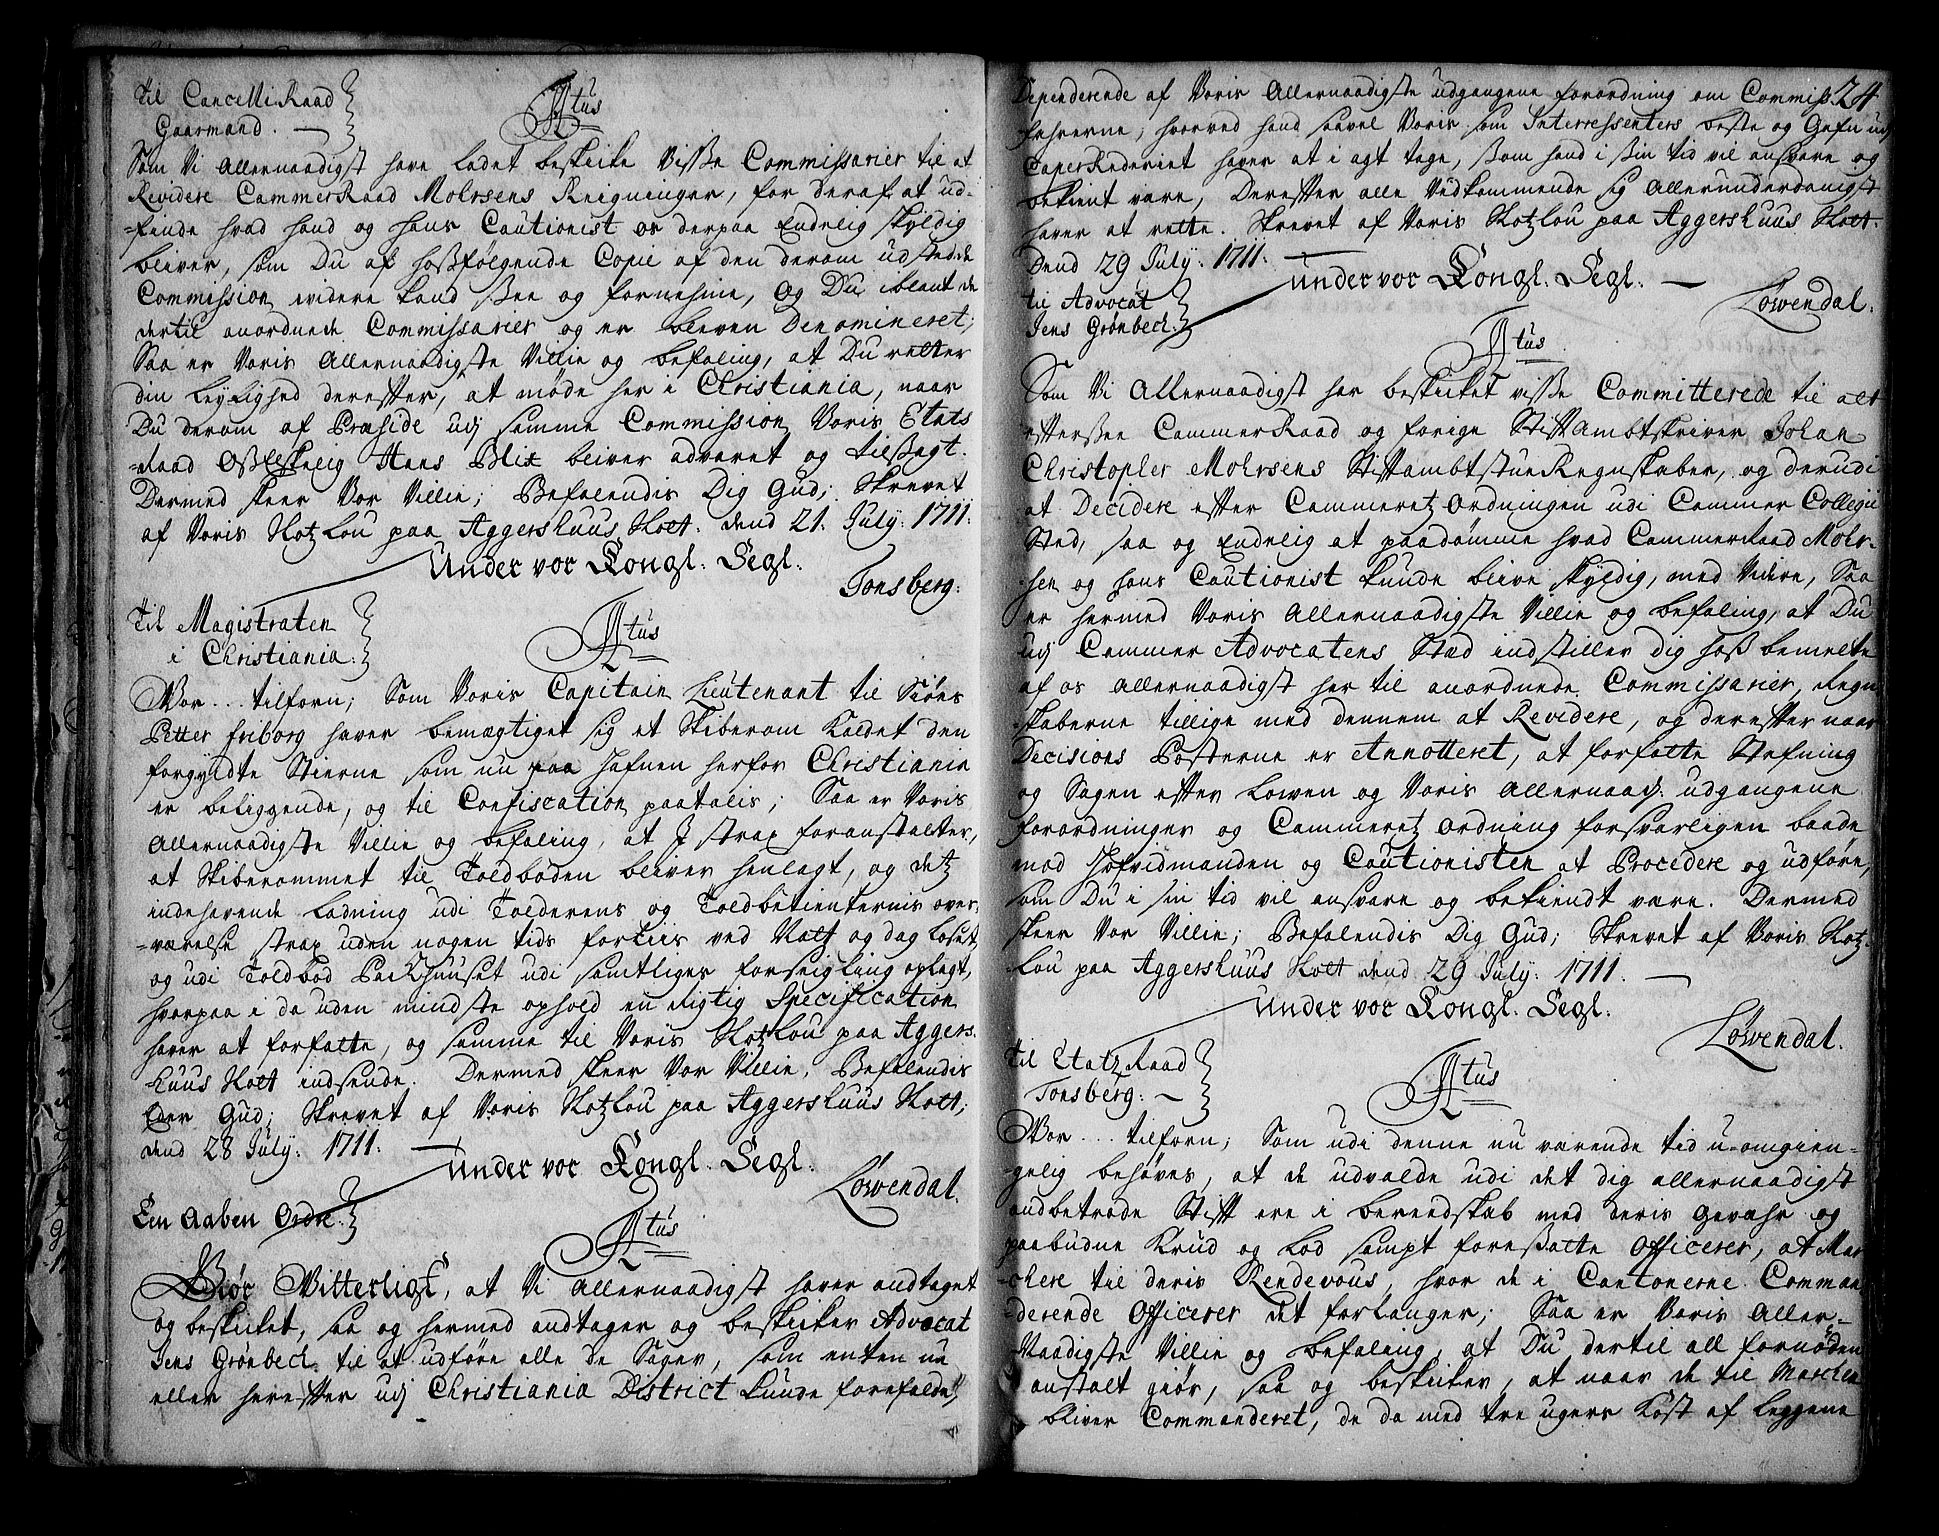 Til CancelliRaad
Gaarmand.
Atus
Som Vi Allernaadigst have ladet beskicke Visse Commissarier til at
Revidere CammerRaad Mohrsens Reigninger, for deraf at ud-
-finde hvad hand og hans Cautionist os derpaa Endelig skyldig
bliver, som Du af hosfølgende Copie af den derom udstedde
Commission videre kand see og fornehme, og Du iblant de
dertil anordnede Commissarier og er bleven Denomineret;
Saa er Voris Allernaadigste Villie og befaling, at Du retter
din leylighed derefter, at møde her i Christiania, naar
Du derom af Præside udj samme Commission Voris Etats
-Raad Hans Blix bliver advaret og tilsagt.
Dermed skeer Vor Villie; Befalendis Dig Gud; Skrevet
af Voris Slotzlou paa Aggershuus Slott. dend 21. July. 1711.
Under vor Kongl. Segl.
Tonsberg.
Til Magistraten
i Christiania.
Atus
Vor... tilforn; Som Voris Capitain Lieutenant til Siøes
Petter Friborg haver bemægtiget sig et Skiberom kaldet den
forgyldte Stierne som nu paa Hafnen herfor Christiania
er beliggende, og til Confiscation paatalis; Saa er Voris
Allernaadigste Villie og befaling, at I strax foranstalter,
at Skiberommet til Toldboden bliver henlagt, og detz
indehavende ladning udi Tolderens og Toldbetienternis over-
-værelse strax uden nogen tids forliis ved Natt og dag losset,
og udi Toldbod Packhuuset udi samtliges forseigling oplagt,
hvorpaa i da uden mindste ophold en Rigtig Specification
haver at forfatte, og samme til Voris Slotzlou paa Aggers-
huus Slott indsende. Dermed skeer Vor Villie, Befalendis
Eder Gud; Skrevet af Voris Slotzlou paa Aggershuus Slott;
dend 28 July. 1711.
Under vor Kongl. Segl.
Løvendal.
Een Aaben Ordre.
Atus
Giør Vitterligt, at Vi Allernaadigst haver andtaget
og beskicket, saa og hermed andtager og beskicker Advocat
Jens Grønbech til at udføre alle de Sager, som enten nu
eller herefter udj Christiania District kunde forefalde,
24
Dependerende af Voris Allernaadigste udgangene forordning om Commiss-
fahrerne, hvorved hand saavel Voris som Interressenters beste og Gafn udj
CaperRederiet haver at i agt tage, som hand i sin tid vil ansvare og
bekient være, Derefter alle Vedkommende sig Allerunderdanigst
haver at rette. Skrevet af Voris Slotzlou paa Aggershuus Slott.
Dend 29 July. 1711.
Under vor Kongl. Segl.
Løvendal.
Til Advocat
Jens Grønbech.
Atus
Som Vi Allernaadigst har beskicket visse Committerede til at
eftersee CammerRaad og forige StiftAmbtskriver Johan
Christopher Mohrsens StiftambtstueRegnskaber, og derudi
at Decidere efter Cammeretz Ordningen udi Cammer Collegii
Sted, saa og Endelig at paadømme hvad CammerRaad Mohr-
-sen og hans Cautionist kunde blive skyldig, med Videre, Saa
er hermed Voris Allernaadigste Villie og befaling, at Du
udj Cammer Advocatens Sted indstiller dig hos bemelte
af os Allernaadigst her til anordnede Commissarier, Regn-
-skaberne tillige med dennem at Revidere, og derefter naar
Decisions Posterne er Annotteret, at forfatte Stefning
og Sagen efter Lowen og Voris Allernaad. udgangene
forordninger og Cammeretz ordning forsvarligen baade
mod Hofvidmanden og Cautionisten at Procedere og udføre,
som Du i sin tid vil ansvare og bekiendt være. Dermed
skeer Vor Villie; Befalendis Dig Gud; Skrevet af Voris Slotz-
lou paa Aggershuus Slott dend 29 July. 1711.
Under vor Kongl. Segl.
Løvendal.
Til Etatz Raad
Tonsberg.
Atus
Vor... tilforn; Som udi denne nu værende tid u-omgien-
gelig behøves, at de udvalde udi det dig allernaadigst
andbetrode Stift ere i bereedskab med deris Gevæhr og
paabudne Krud og Lod sampt foresatte Officerer, at Mar-
-chere til deris Rendevous, hvor de i Cantonerne Comman-
-derende Officerer det forlanger; Saa er Voris Aller-
Naadigste Villie og befaling, at Du dertil all fornøden
anstalt giør, saa og beskicker, at naar de til Marchen
bliver Commanderet, de da med tre ugers Kost af leggene